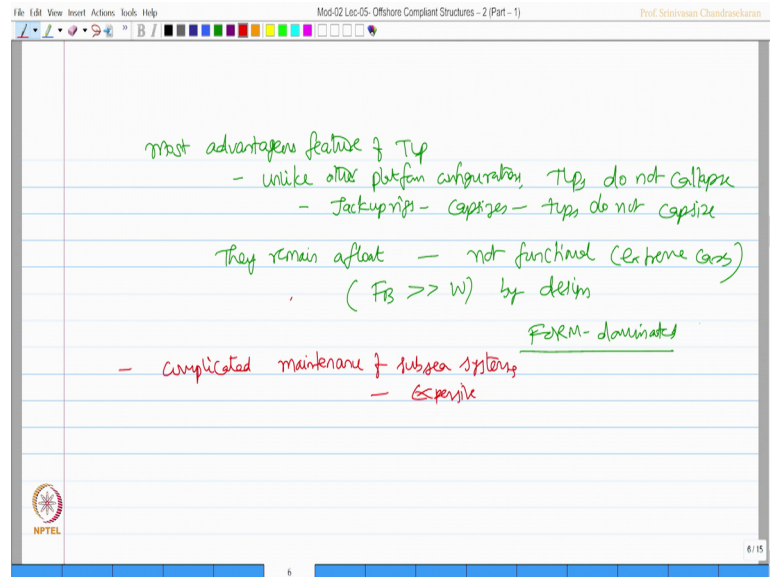 File Edit View Insert Actions Tools Help
Mod-02 Lec-05- Offshore Compliant Structures – 2 (Part – 1)
Prof. Srinivasan Chandrasekaran
B I
most advantageous feature of TLP
- unlike other platform configurations, TLPs do not collapse
- Jackuprigs - capsizes - TLPs do not capsize
They remain afloat - not functional (extreme cases)
( FB >> W) by design
FORM-dominated
- complicated maintenance of subsea systems
- expensive
NPTEL
6/15
6